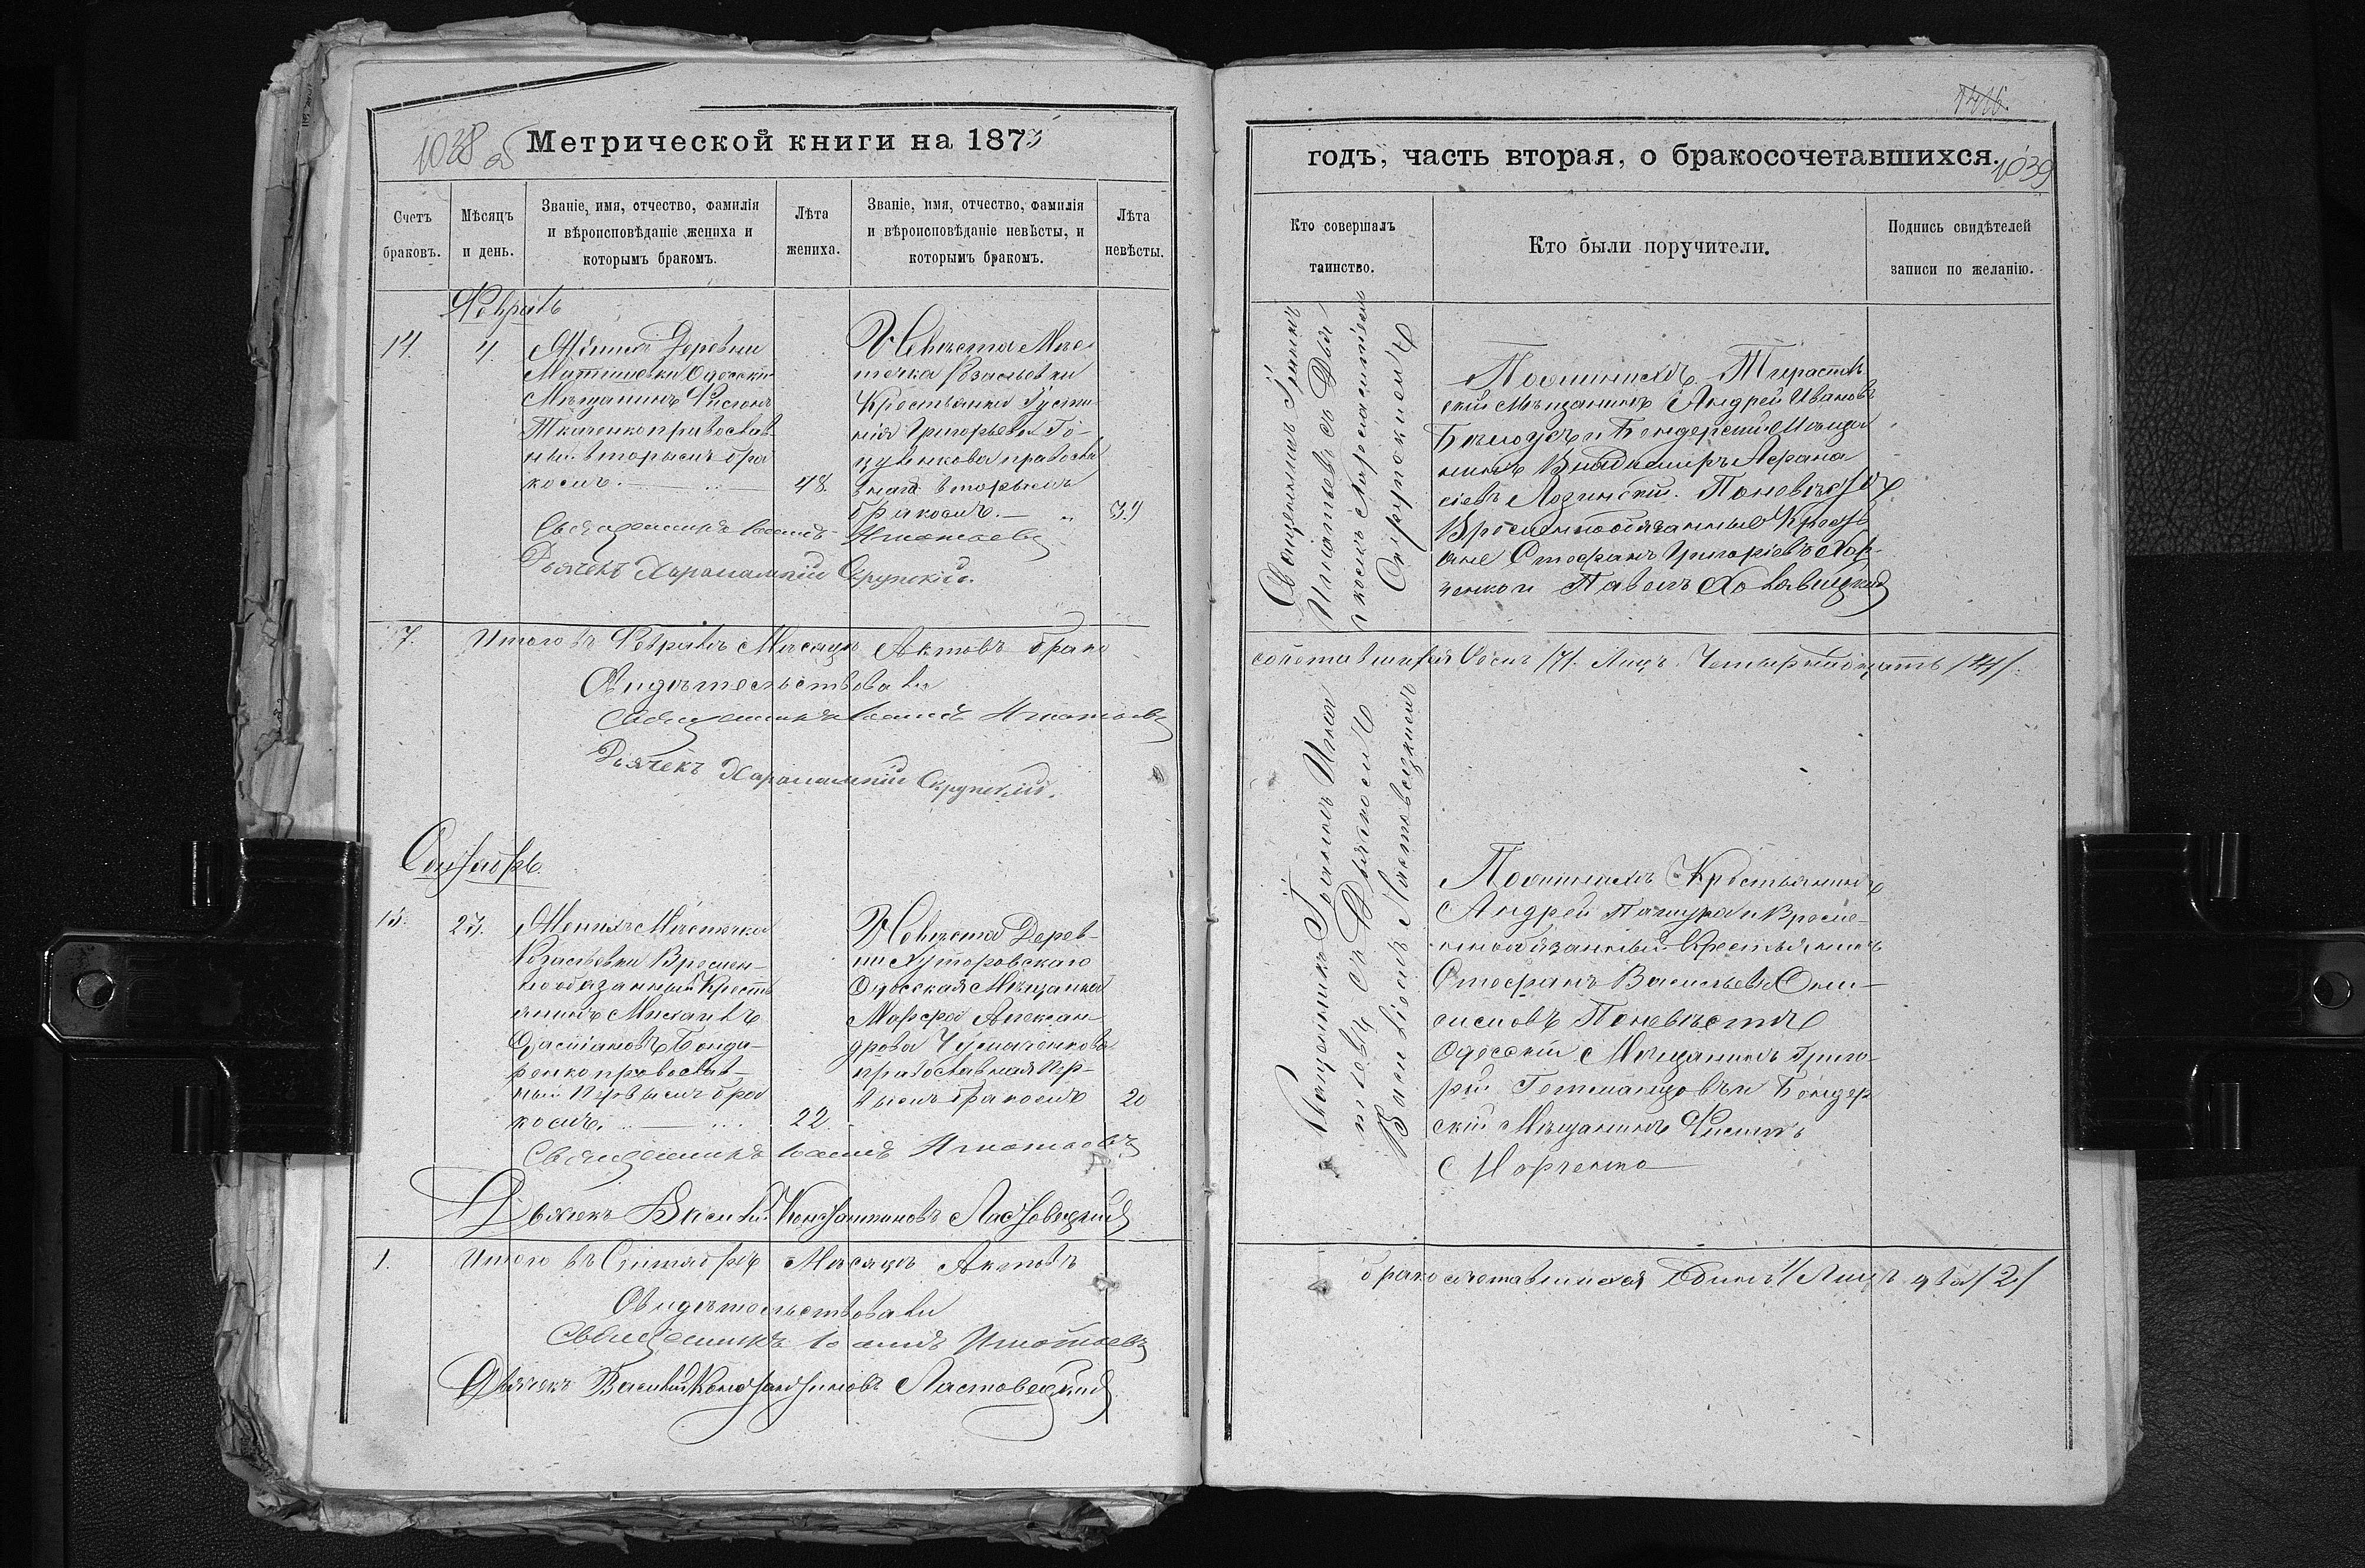 1038 об
Метрической книги на 1873
Счетъ браковъ.
Мѣсяцъ и день.
Званіе, имя, отчество, фамилія и вѣроисповѣданіе жениха и которымъ бракомъ.
Лѣта жениха.
Званіе, имя, отчество, фамилія и вѣроисповѣданіе невѣсты, и которымъ бракомъ.
Лѣта невѣсты.
Февраль
14.
4.
Женихъ Деревни
Одесскій
Мѣщанинъ
Ткаченко православ-
ный вторымъ бра
комъ.
48.
Невѣста Мѣс
течка
Крестьянка Густи
нія Григорьева Го-
православ
вторымъ
бракомъ.
39
Священникъ Іоаннъ Игнатьевъ
Дьячекъ Харалампій Скрупскій.
7.
Итого въ Февралѣ Мѣсяцѣ Актовъ брако
Свидѣтельствовали
Священникъ Іоаннъ Игнатьевъ
Дьячекъ Харалампій Скрупскій.
Сентябрь.
15.
27.
Женихъ Мѣстечка
Времен-
нообязанный Кресть
янинъ Михаилъ
Бонда-
ренко православ-
ный первымъ бра
комъ.
22.
Невѣста Дерев-
ни Хуторовскаго
Одесская Мѣщанка
Марфа Алексан
дрова Чумаченкова
православная пер-
вымъ бракомъ
20
Священникъ Іоаннъ Игнатьевъ
Дьячекъ Василій Константиновъ Ластовецкій
1.
Итого въ Сентябрѣ Мѣсяцѣ Актовъ
Свидѣтельствовали
Священникъ Іоаннъ Игнатьевъ
Дьячекъ Василій Константиновъ Ластовецкій
годъ, часть вторая, о бракосочетавшихся.
1039
Кто совершалъ таинство.
Кто были поручители.
Подпись свидѣтелей записи по желанію.
Священникъ Іоаннъ
Игнатьевъ съ Дья
чкомъ Харалампіемъ
Скрупскимъ
По женихѣ Тирасполь
скій Мѣщанинъ Андрей Ивановъ
и Бендерскій Мѣща
нинъ Владимиръ Афана
сіевъ Лозинскій. По невѣстѣ
Временнообязанные Кресть
яне Стефанъ Григоріевъ Хар
ченко и Павелъ
сочетавшихся Семь /7/. Лицъ Четырнадцать /14/.
Священникъ Іоаннъ Игна
тьевъ съ Дьячкомъ
Василіемъ Ластовецкимъ
По женихѣ Крестьянинъ
Андрей и Време-
ннообязанный Крестьянинъ
Стефанъ Васильевъ Они-
симовъ По невѣстѣ
Одесскій Мѣщанинъ Григо-
рій и Бендер
скій Мѣщанинъ
Марченко
бракосочетавшихся Одинъ /1/ Лицъ два /2/